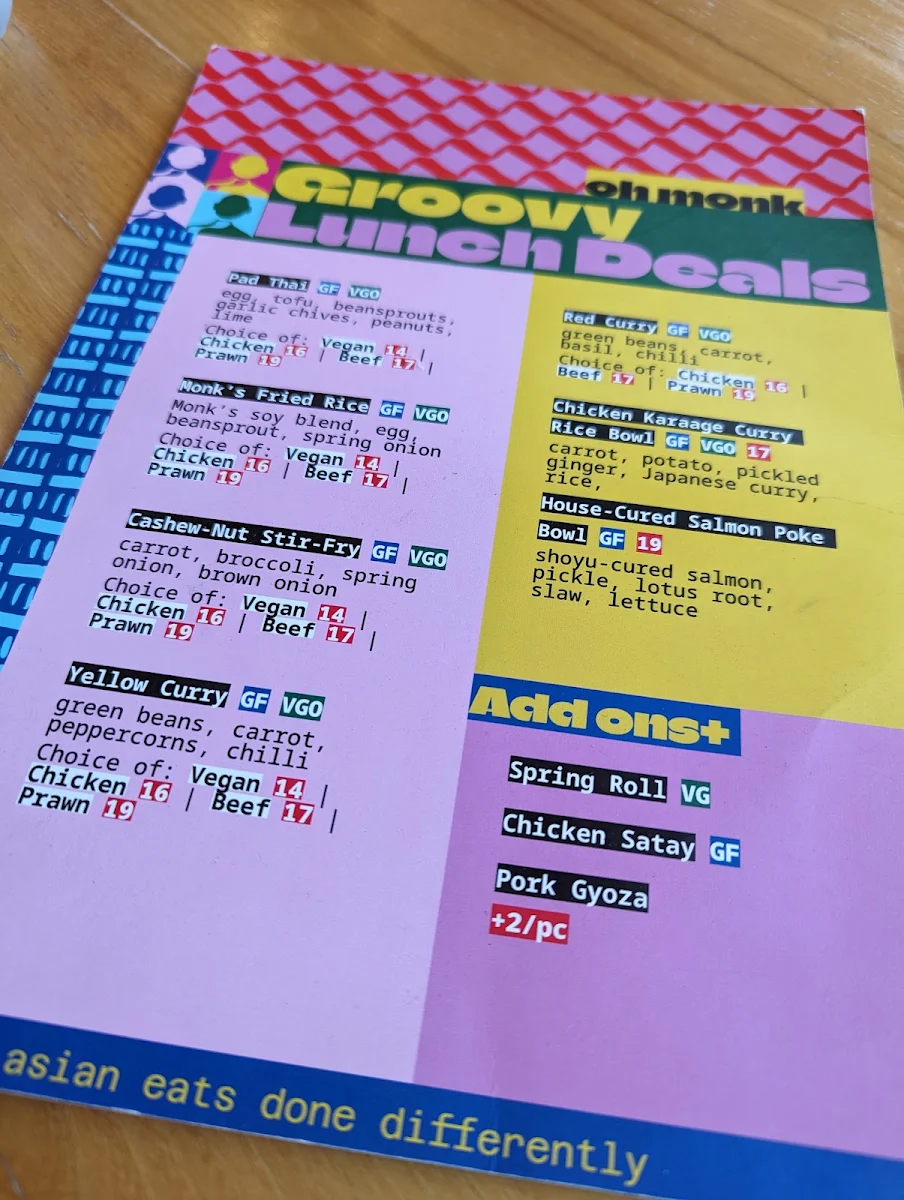 oh monk
Groovy
Lunch Deals
Pad Thai GF VGO
egg, tofu, beansprouts,
garlic chives, peanuts,
lime
Choice of: Vegan 14 |
Chicken 16 | Beef 17 |
Prawn 19
Monk's Fried Rice GF VGO
Monk's soy blend, egg,
beansprout, spring onion
Choice of: Vegan 14 |
Chicken 16 | Beef 17 |
Prawn 19
Cashew-Nut Stir-Fry GF VGO
carrot, broccoli, spring
onion, brown onion
Choice of: Vegan 14 |
Chicken 16 | Beef 17 |
Prawn 19
Yellow Curry GF VGO
green beans, carrot,
peppercorns, chilli
Choice of: Vegan 14 |
Chicken 16 | Beef 17 |
Prawn 19
Red Curry GF VGO
green beans, carrot,
basil, chilli
Choice of: Chicken 16 |
Beef 17 | Prawn 19
Chicken Karaage Curry
Rice Bowl GF VGO 17
carrot, potato, pickled
ginger, Japanese curry,
rice,
House-Cured Salmon Poke
Bowl GF 19
shoyu-cured salmon,
pickle, lotus root,
slaw, lettuce
Add ons+
Spring Roll VG
Chicken Satay GF
Pork Gyoza
+2/pc
asian eats done differently